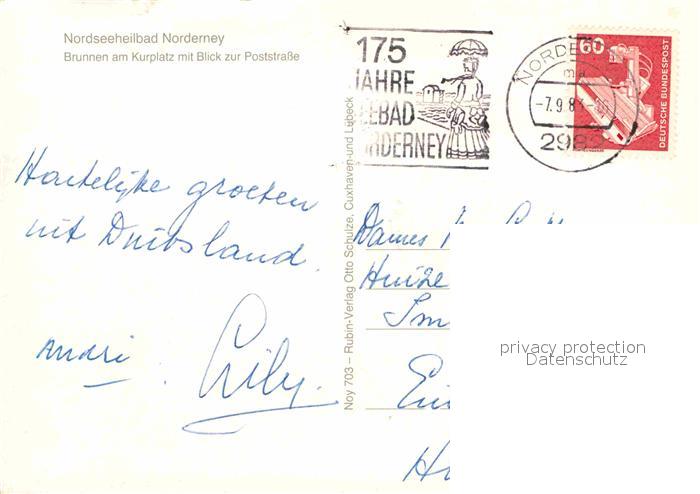 Nordseeheilbad Norderney
Brunnen am Kurplatz mit Blick zur Poststraße
175
JAHRE
EEBAD
RDERNEY
NORDE
-7.9.8
2982
60
DEUTSCHE BUNDESPOST
Hartelijke groeten
uit Duitsland.
André
Lily.
Noy 703 – Rubin-Verlag Otto Schulze, Cuxhaven und Lübeck
Dames
Huize
Sm
Ein
privacy protection
Datenschutz